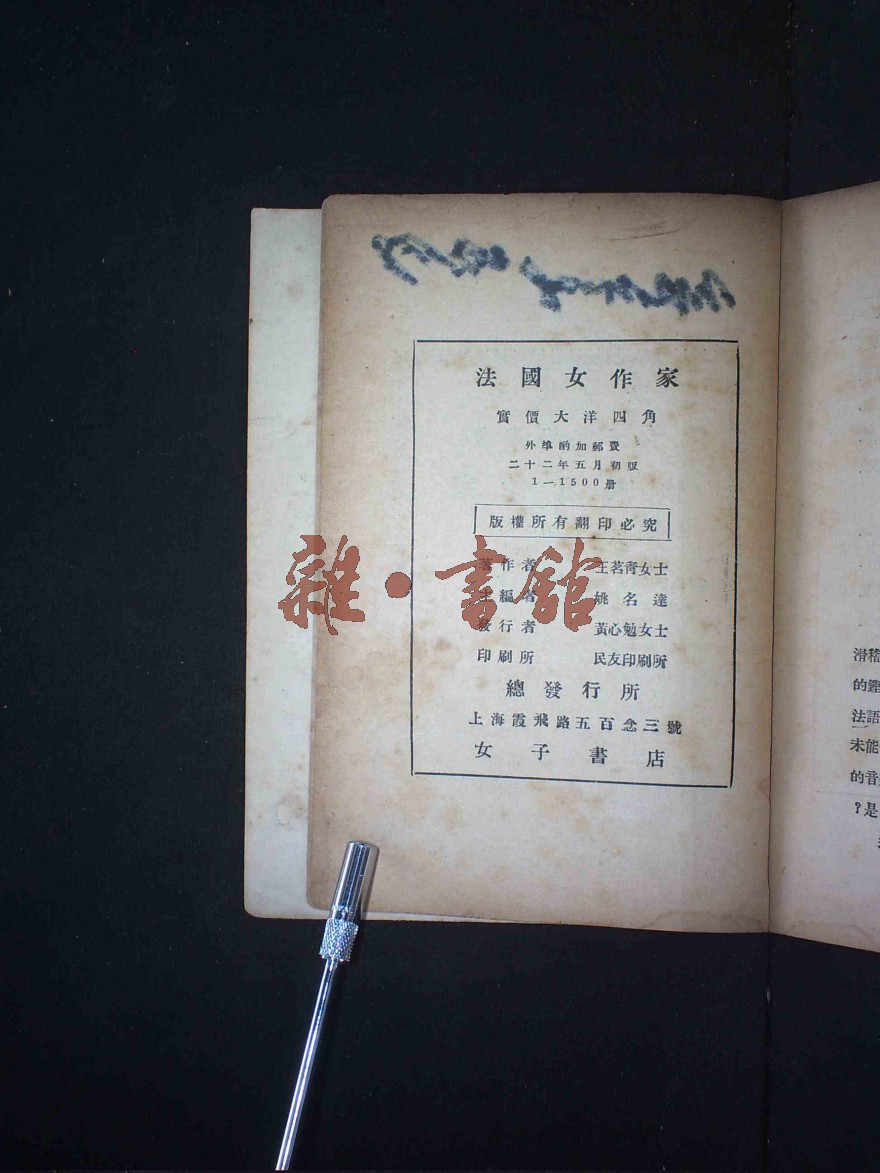 法國女作家
實價大洋四角
外埠酌加郵費
二十二年五月初版
1—1500册
版權所有翻印必究
著作者 汪茗靑女士
主編者 姚名達
發行者 黃心勉女士
印刷所 民友印刷所
總發行所
上海霞飛路五百念三號
女子書店
雜·書舘
滑稽
的
法語
未能
的音
?是